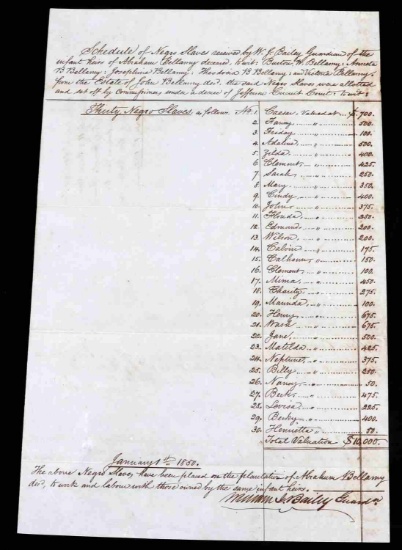 Schedule of Negro Slaves received by W. J. Bailey Guardian of the
infant heirs of Abraham Bellamy deceased, to wit: Burton W. Bellamy,
B Bellamy; Josephine Bellamy, Theodosia B Bellamy; and Victoria Bellamy,
from the Estate of John Bellamy decd. the said Negro Slaves was allotted
and set off by Commissioners under a decree of Jefferson Circuit Court: to wit:
Thirty Negro Slaves as follows No. 1 Caesar Valued at $ 700.
2 Fanny " 500.
3 Friday " 100.
4 Adeline " 500.
5 Zelda " 400.
6 Clement " 425.
7 Sarah " 250.
8 Mary " 350.
9 Cindy " 400.
10 John " 375.
11 Florida "
12 Edmund " 200.
13 Wilson " 200.
14 Calvin " 175.
15 Calhoun " 150.
16 Clement " 100.
17 Mima " 450.
18 Charity " 275.
19 " 100.
20 Henry " 675.
21 " 675.
22 Jane " 500.
23 Matilda " 425.
24 Neptune " 375.
25 Billy " 250.
26 Nancy " 50.
27 " 475.
28 Lovisa " 325.
29 Becky " 400.
30 Henrietta "
Total Valuation $10,000.
January 1st 1850.
The above Negro Slaves have been placed on the plantation of Abraham Bellamy
decd, to work and labour with those owned by the same infant heirs.
William J. Bailey Guardn